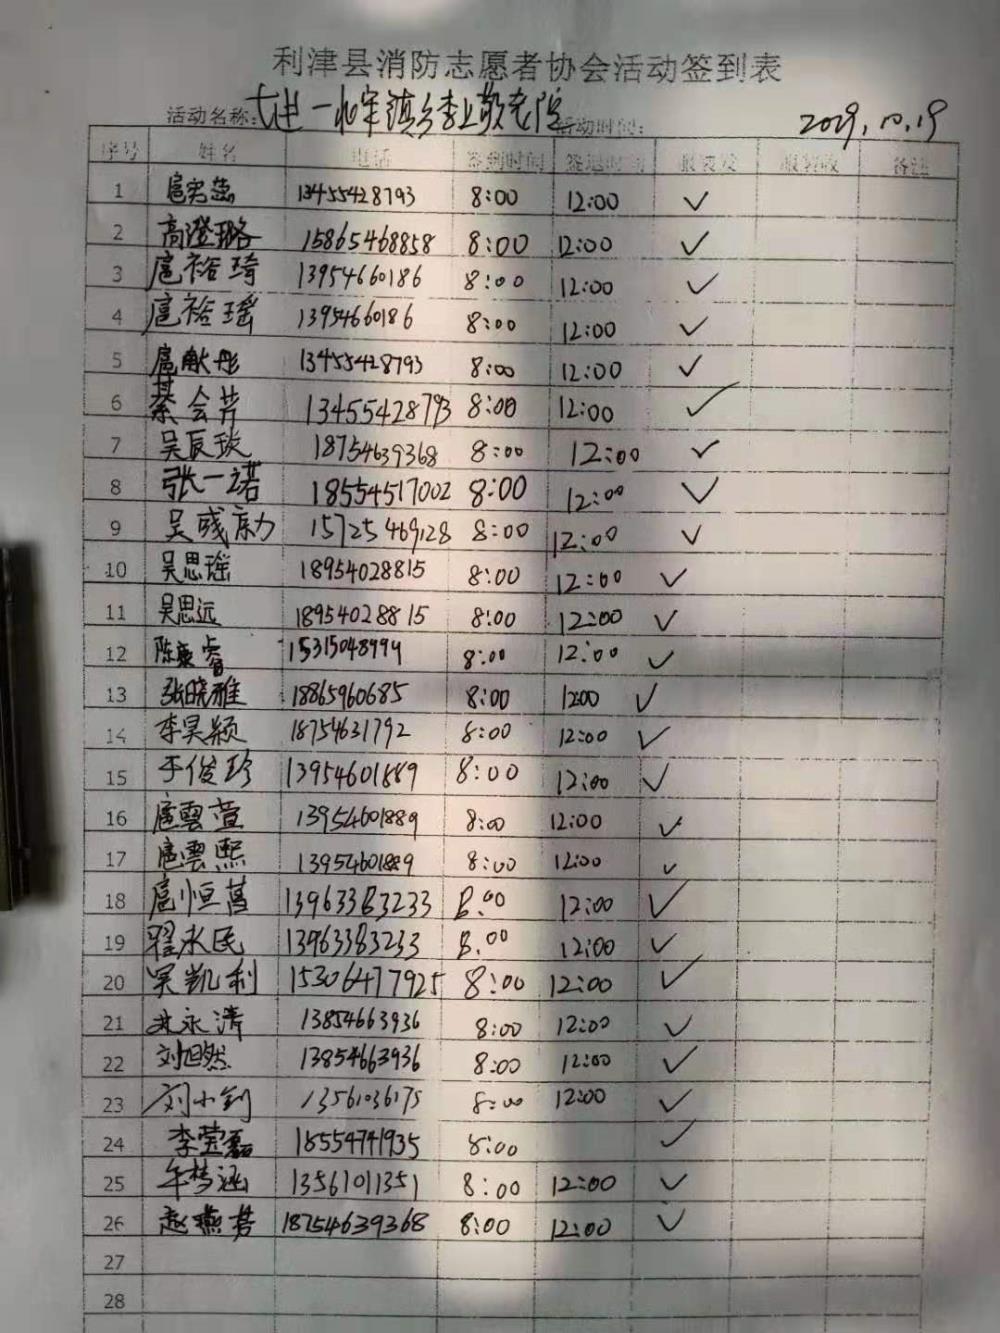 利津县消防志愿者协会活动签到表
活动名称: 七进一北宋镇乡李上敬老院 活动时间: 2029.10.19
序号 姓名 电话 签到时间 签退时间 服装发 服装收 备注
1 扈 13455428793 8:00 12:00 ✓
2 高澄璐 15865468858 8:00 12:00 ✓
3 扈裕琦 13954660186 8:00 12:00 ✓
4 扈裕瑶 13954660186 8:00 12:00 ✓
5 扈献彤 13455428793 8:00 12:00 ✓
6 綦会芳 13455428793 8:00 12:00 ✓
7 吴辰琰 18754639368 8:00 12:00 ✓
8 张一诺 18554517002 8:00 12:00 ✓
9 吴彧勍 15725469128 8:00 12:00 ✓
10 吴思瑶 18954028815 8:00 12:00 ✓
11 吴思远 18954028815 8:00 12:00 ✓
12 陈奕睿 15315048999 8:00 12:00 ✓
13 张晓雅 18865960685 8:00 1200 ✓
14 李昊颖 18754631792 8:00 12:00 ✓
15 于俊珍 13954601889 8:00 12:00 ✓
16 扈雲萱 13954601889 8:00 12:00 ✓
17 扈雲熙 13954601889 8:00 12:00 ✓
18 扈恒菖 13963383233 8:00 12:00 ✓
19 翟永民 13963383233 8:00 12:00 ✓
20 吴凯利 15306477925 8:00 12:00 ✓
21 永清 13854663936 8:00 12:00 ✓
22 刘旭然 13854663936 8:00 12:00 ✓
23 刘小钊 13561036175 8:00 12:00 ✓
24 李莹磊 18554741935 8:00 ✓
25 牟梦涵 13561011351 8:00 12:00 ✓
26 赵燕芳 18754639368 8:00 12:00 ✓
27
28